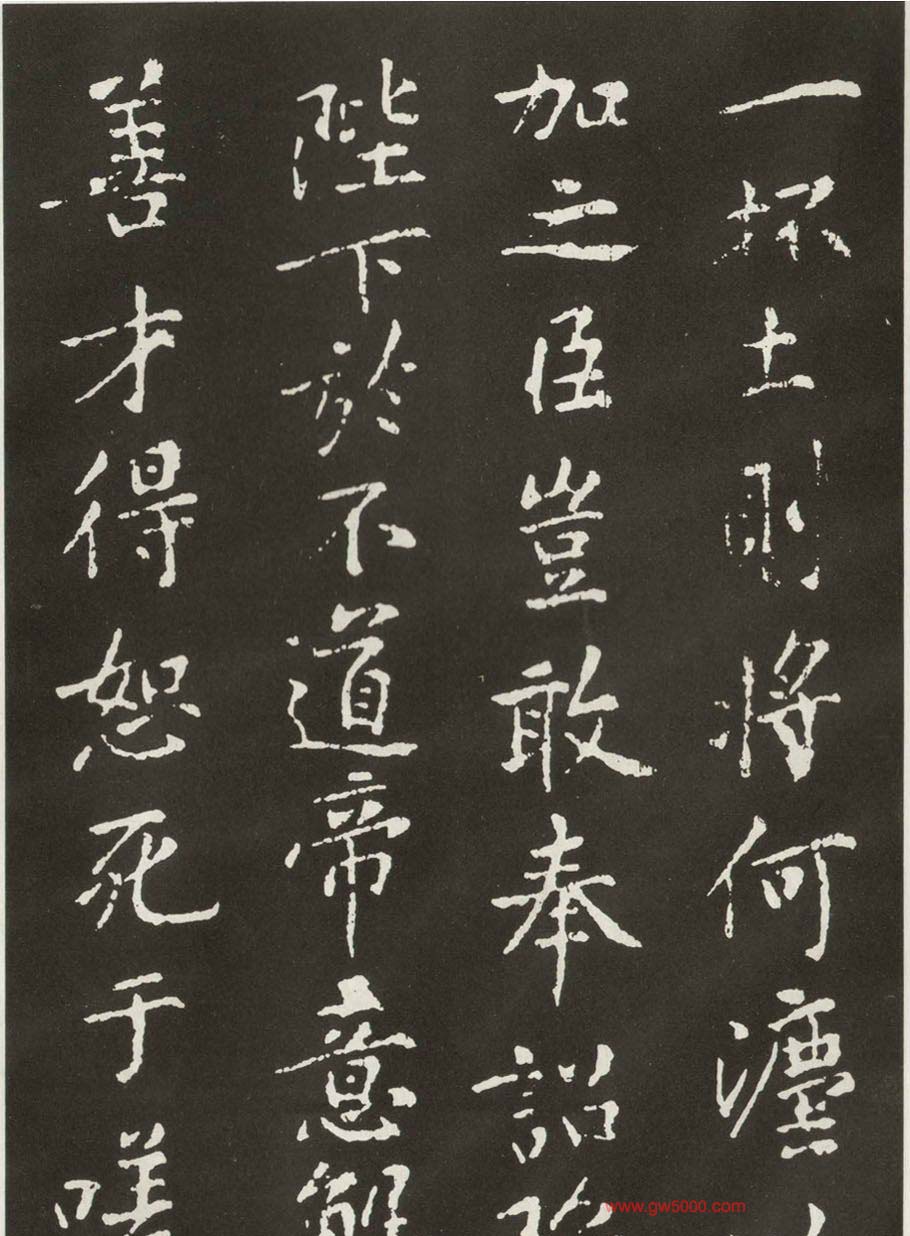 一抔土則將何灋
加之臣豈敢奉詔
陛下於不道帝意解
善才得恕死于嗟
www.gw5000.com